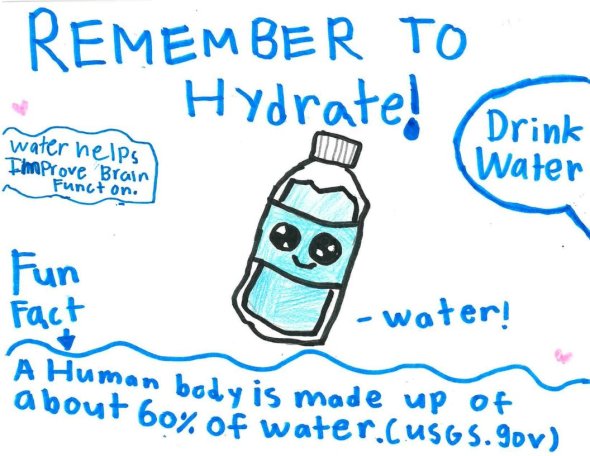 REMEMBER TO
Hydrate!
water helps
Improve Brain
Function.
Drink
Water
Fun
Fact
- water!
A Human body is made up of
about 60% of water. (USGS.gov)